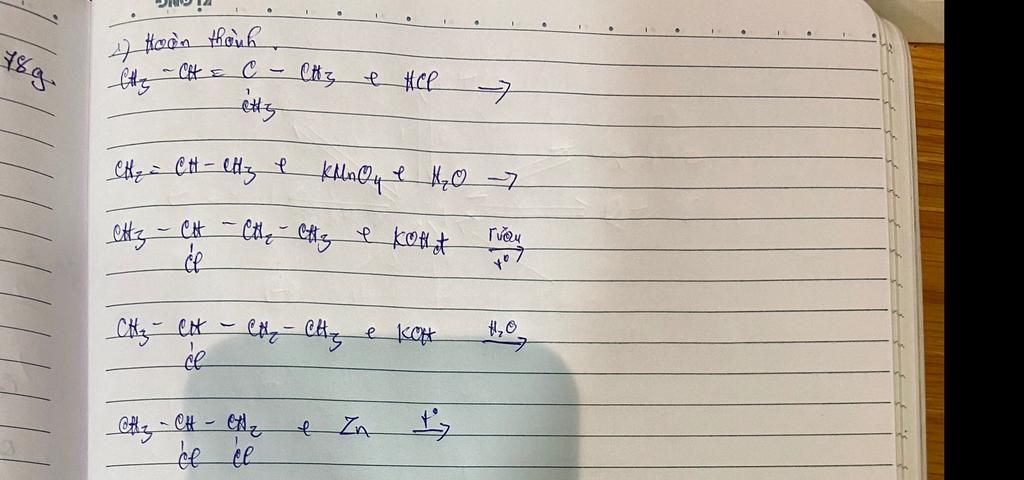 78g.
1) Hoàn thành.
CH3 - CH = C - CH3 + HCl →
CH3
CH2 = CH - CH3 + KMnO4 + H2O →
CH3 - CH - CH2 - CH3 + KOH đ rượu →
Cl t°
CH3 - CH - CH2 - CH3 + KOH H2O →
Cl
CH3 - CH - CH2 + Zn t° →
Cl Cl